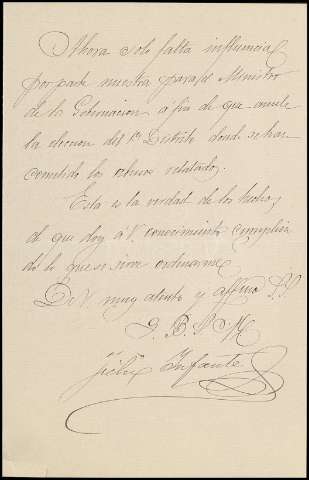 Ahora solo falta influencia
por parte nuestra para el Ministro
de la Gobernacion á fin de que anule
la eleccion del 1º Distrito donde se han
cometido los abusos relatados.
Esta es la verdad de los hechos,
de que doy á V. conocimiento cumplien
do lo que se sirve ordenarme
De V. muy atento y affmo S.S.
Q. B. S. M.
Felix Infante